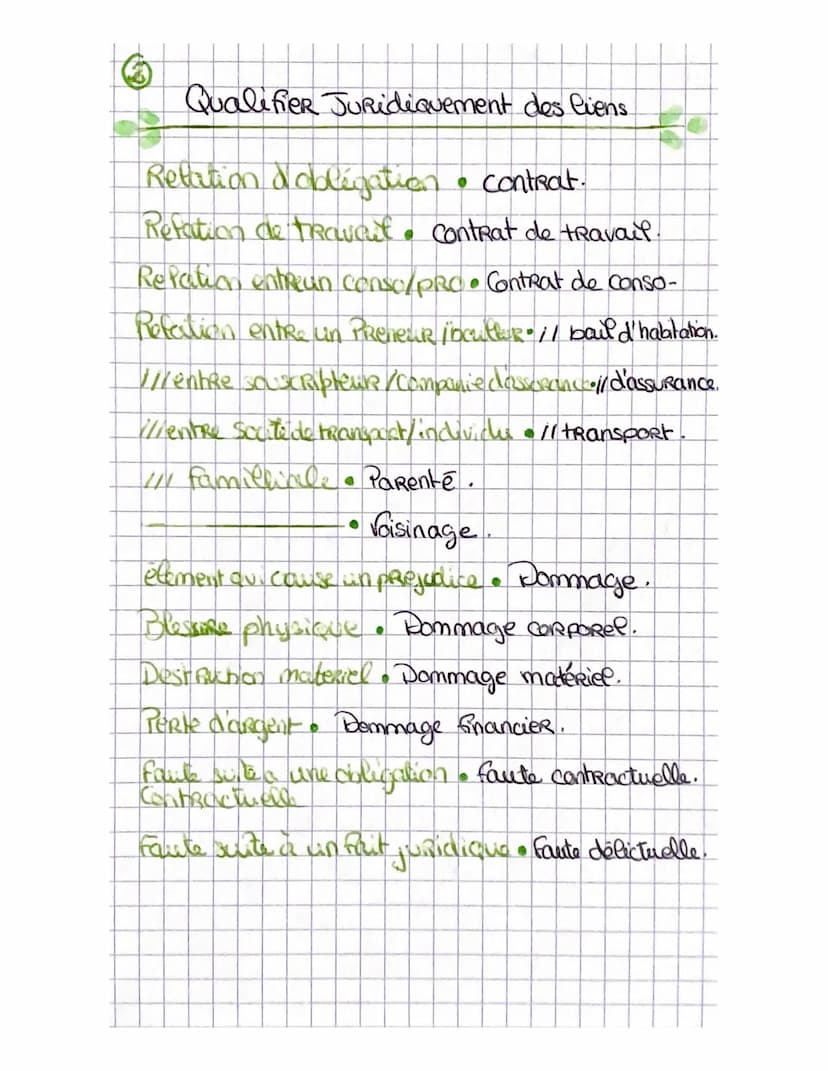 ②
Qualifier Juridiquement des liens
Relation d'obligation • contrat.
Relation de travail • contrat de travail.
Relation entre un conso/pro • Contrat de conso-
Relation entre un Preneur / • // bail d'habitation.
/// entre souscripteur / Companie d'assurance • // d'assurance.
/// entre Socité de transport / individu • // transport.
/// familliale • Parenté.
• Voisinage.
élément qui cause un prejudice • Dommage.
Blessure physique • Dommage corporel.
Destruction materiel • Dommage matériel.
Perte d'argent • Dommage financier.
Faute suite a une obligation • faute contractuelle.
Contractuelle
Faute suite à un fait juridique • Faute délictuelle.